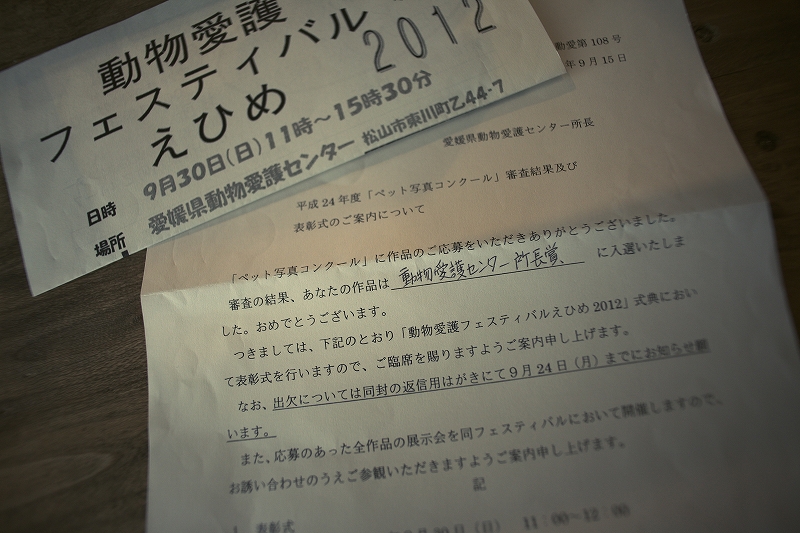 動物愛護
フェスティバル
えひめ 2012
日時 9月30日(日)11時〜15時30分
場所 愛媛県動物愛護センター 松山市東川町乙44-7
動愛第108号
年9月15日
愛媛県動物愛護センター所長
平成24年度「ペット写真コンクール」審査結果及び
表彰式のご案内について
「ペット写真コンクール」に作品のご応募をいただきありがとうございました。
審査の結果、あなたの作品は 動物愛護センター所長賞 に入選いたしま
した。おめでとうございます。
つきましては、下記のとおり「動物愛護フェスティバルえひめ2012」式典におい
て表彰式を行いますので、ご臨席を賜りますようご案内申し上げます。
なお、出欠については同封の返信用はがきにて9月24日(月)までにお知らせ願
います。
また、応募のあった全作品の展示会を同フェスティバルにおいて開催しますので、
お誘い合わせのうえご参観いただきますようご案内申し上げます。
記
1 表彰式
月30日(日) 11:00〜12:00